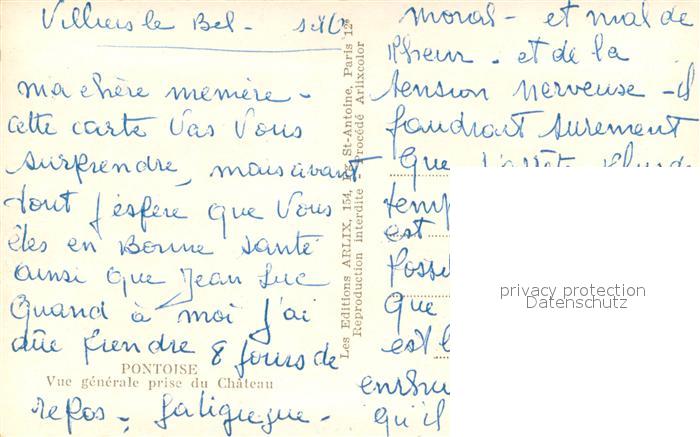 Villiers le Bel -
ma chère memère -
cette carte vas vous
surprendre, mais avant
tout j'espère que vous
êtes en Bonne santé
ainsi que Jean Luc
Quand à moi j'ai
dûe prendre 8 jours de
PONTOISE
Vue générale prise du Château
repos -
Les Editions ARLIX, 154, St-Antoine, Paris 12e
Reproduction interdite Procédé Arlixcolor
moral - et mal de
et de la
tension nerveuse - il
faudrait surement
que
est
que
est
qu'il
privacy protection
Datenschutz